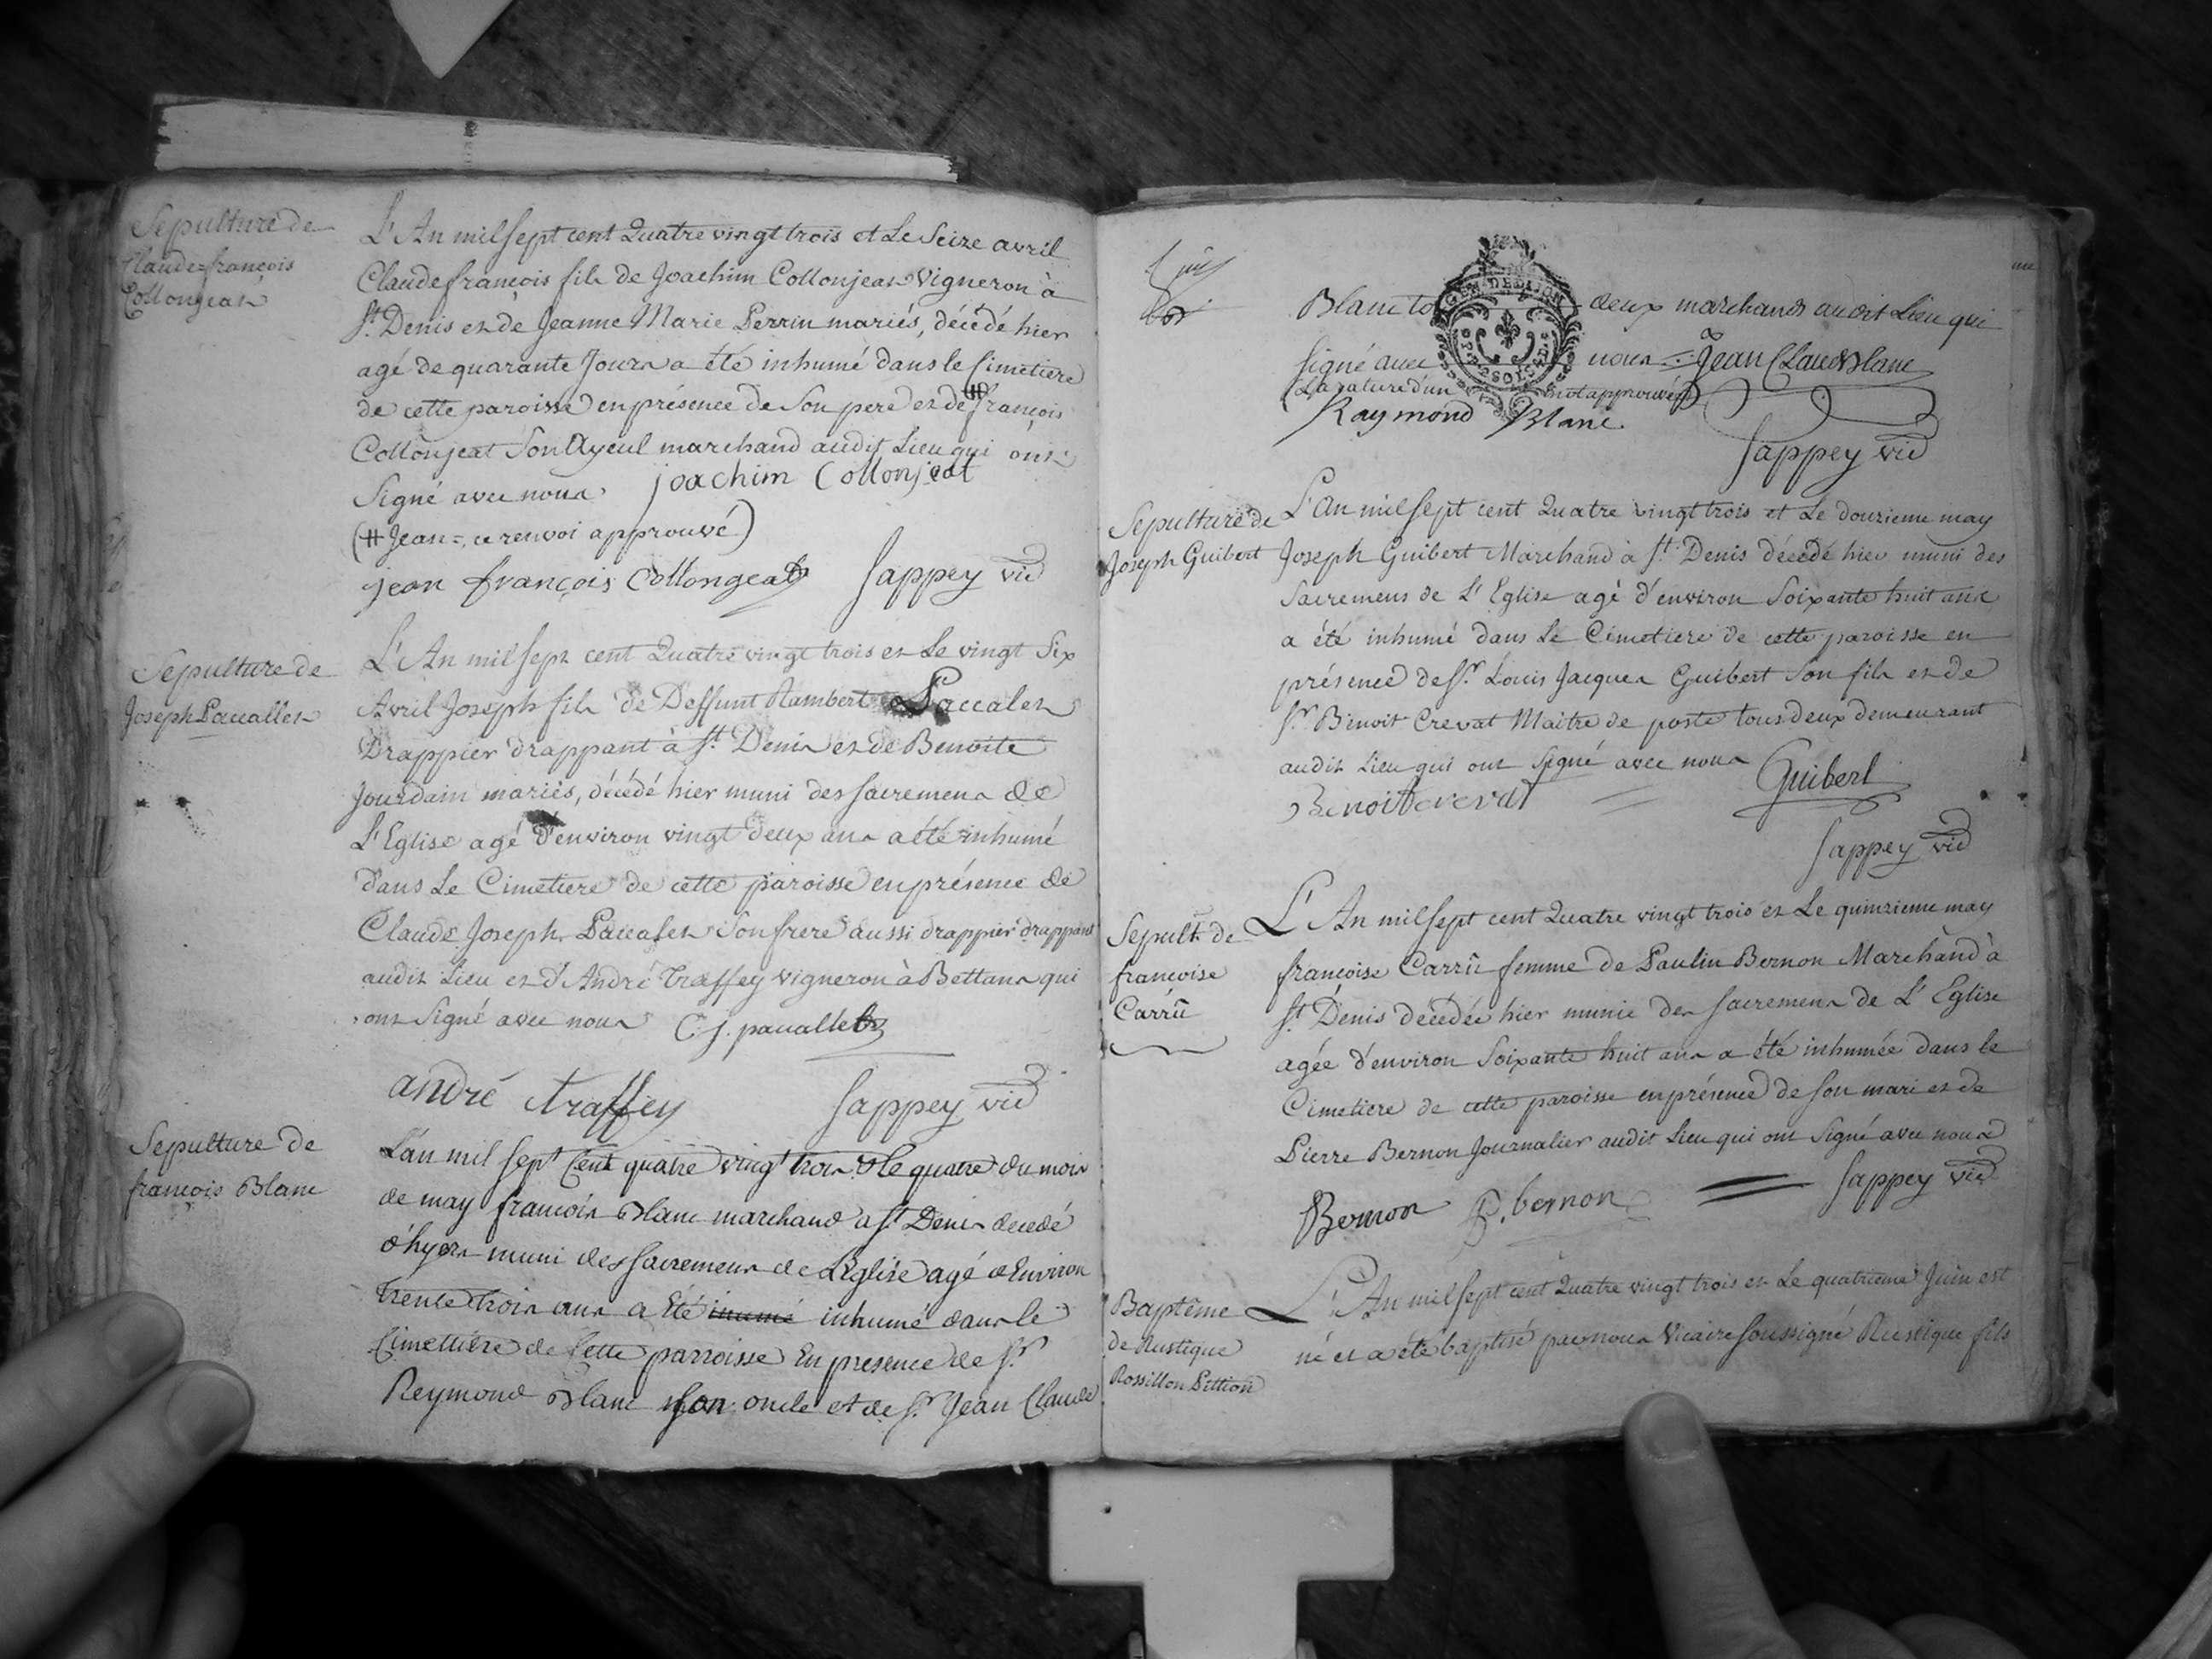 Sepulture de
Claude=françois
Collonjeat
L'An mil sept cent Quatre vingt trois et Le Seize avril
Claude françois fils de Joachim Collonjeat Vigneron à
St. Denis et de Jeanne Marie Perrin mariés, décédé hier
agé de quarante Jours a été inhumé dans le Cimetiere
de cette paroisse en présence de Son pere et de # françois
Collonjeat Son Ayeul marchand audit Lieu qui ont
Signé avec nous. joachim Collonjeat
(# Jean =, ce renvoi approuvé)
jean françois Collongeat Sappey vic
Sepulture de
Joseph Paccallet
L'An mil sept cent Quatre vingt trois et Le vingt Six
Avril Joseph fils de Deffunt Rambert Paccalet
Drappier drappant à St. Denis et de Benoite
Jourdain mariés, décédé hier muni des sacremens de
L'Eglise agé d'environ vingt deux ans a été inhumé
dans Le Cimetiere de cette paroisse en présence de
Claude Joseph Paccalet Son frere aussi drappier drappant
audit Lieu et d'André Traffey vigneron à Bettans qui
ont Signé avec nous C. j. pacallet
andré traffey Sappey vic
Sepulture de
françois Blanc
L'an mil sept Cent quatre vingt trois & le quatre du mois
de may francois Blanc marchand a St Denis decedé
d'hyers muni des sacremens de L'Eglise agé d'Environ
trente trois ans a Eté inumé inhumé dans le
Cimettiere de Cette parroisse En presence de Sr.
Reymond Blanc son oncle et de Sr. Jean Claude
Blanc to deux marchands audit Lieu qui
GEN. DE DIJON
signé avec nous Jean Claud Blanc
(La rature d'un mot approuvée)
Raymond Blanc
Sappey vic
Sepulture de
Joseph Guibert
L'An mil sept cent Quatre vingt trois et Le douzieme may
Joseph Guibert Marchand à St. Denis décédé hier muni des
Sacremens de L'Eglise agé d'environ Soixante huit ans
a été inhumé dans Le Cimetiere de cette paroisse en
présence de Sr. Louis Jacques Guibert Son fils et de
Sr. Benoit Crevat Maitre de poste tous deux demeurant
audit Lieu qui ont Signé avec nous Guibert
Benoit crevat
Sappey vic
Sepult. de
francoise
Carrû
L'An mil sept cent Quatre vingt trois et Le quinzieme may
francoise Carrû femme de Paulin Bernon Marchand à
St. Denis décédée hier munie des sacremens de L'Eglise
agée d'environ Soixante huit ans a été inhumée dans le
Cimetiere de cette paroisse en présence de Son mari et de
Pierre Bernon Journalier audit Lieu qui ont Signé avec nous
Bernon P. bernon Sappey vic
Baptême
de Rustique
Rossillon Pittion
L'An mil sept cent Quatre vingt trois et Le quatrieme Juin est
né et a été baptisé par nous Vicaire soussigné Rustique fils